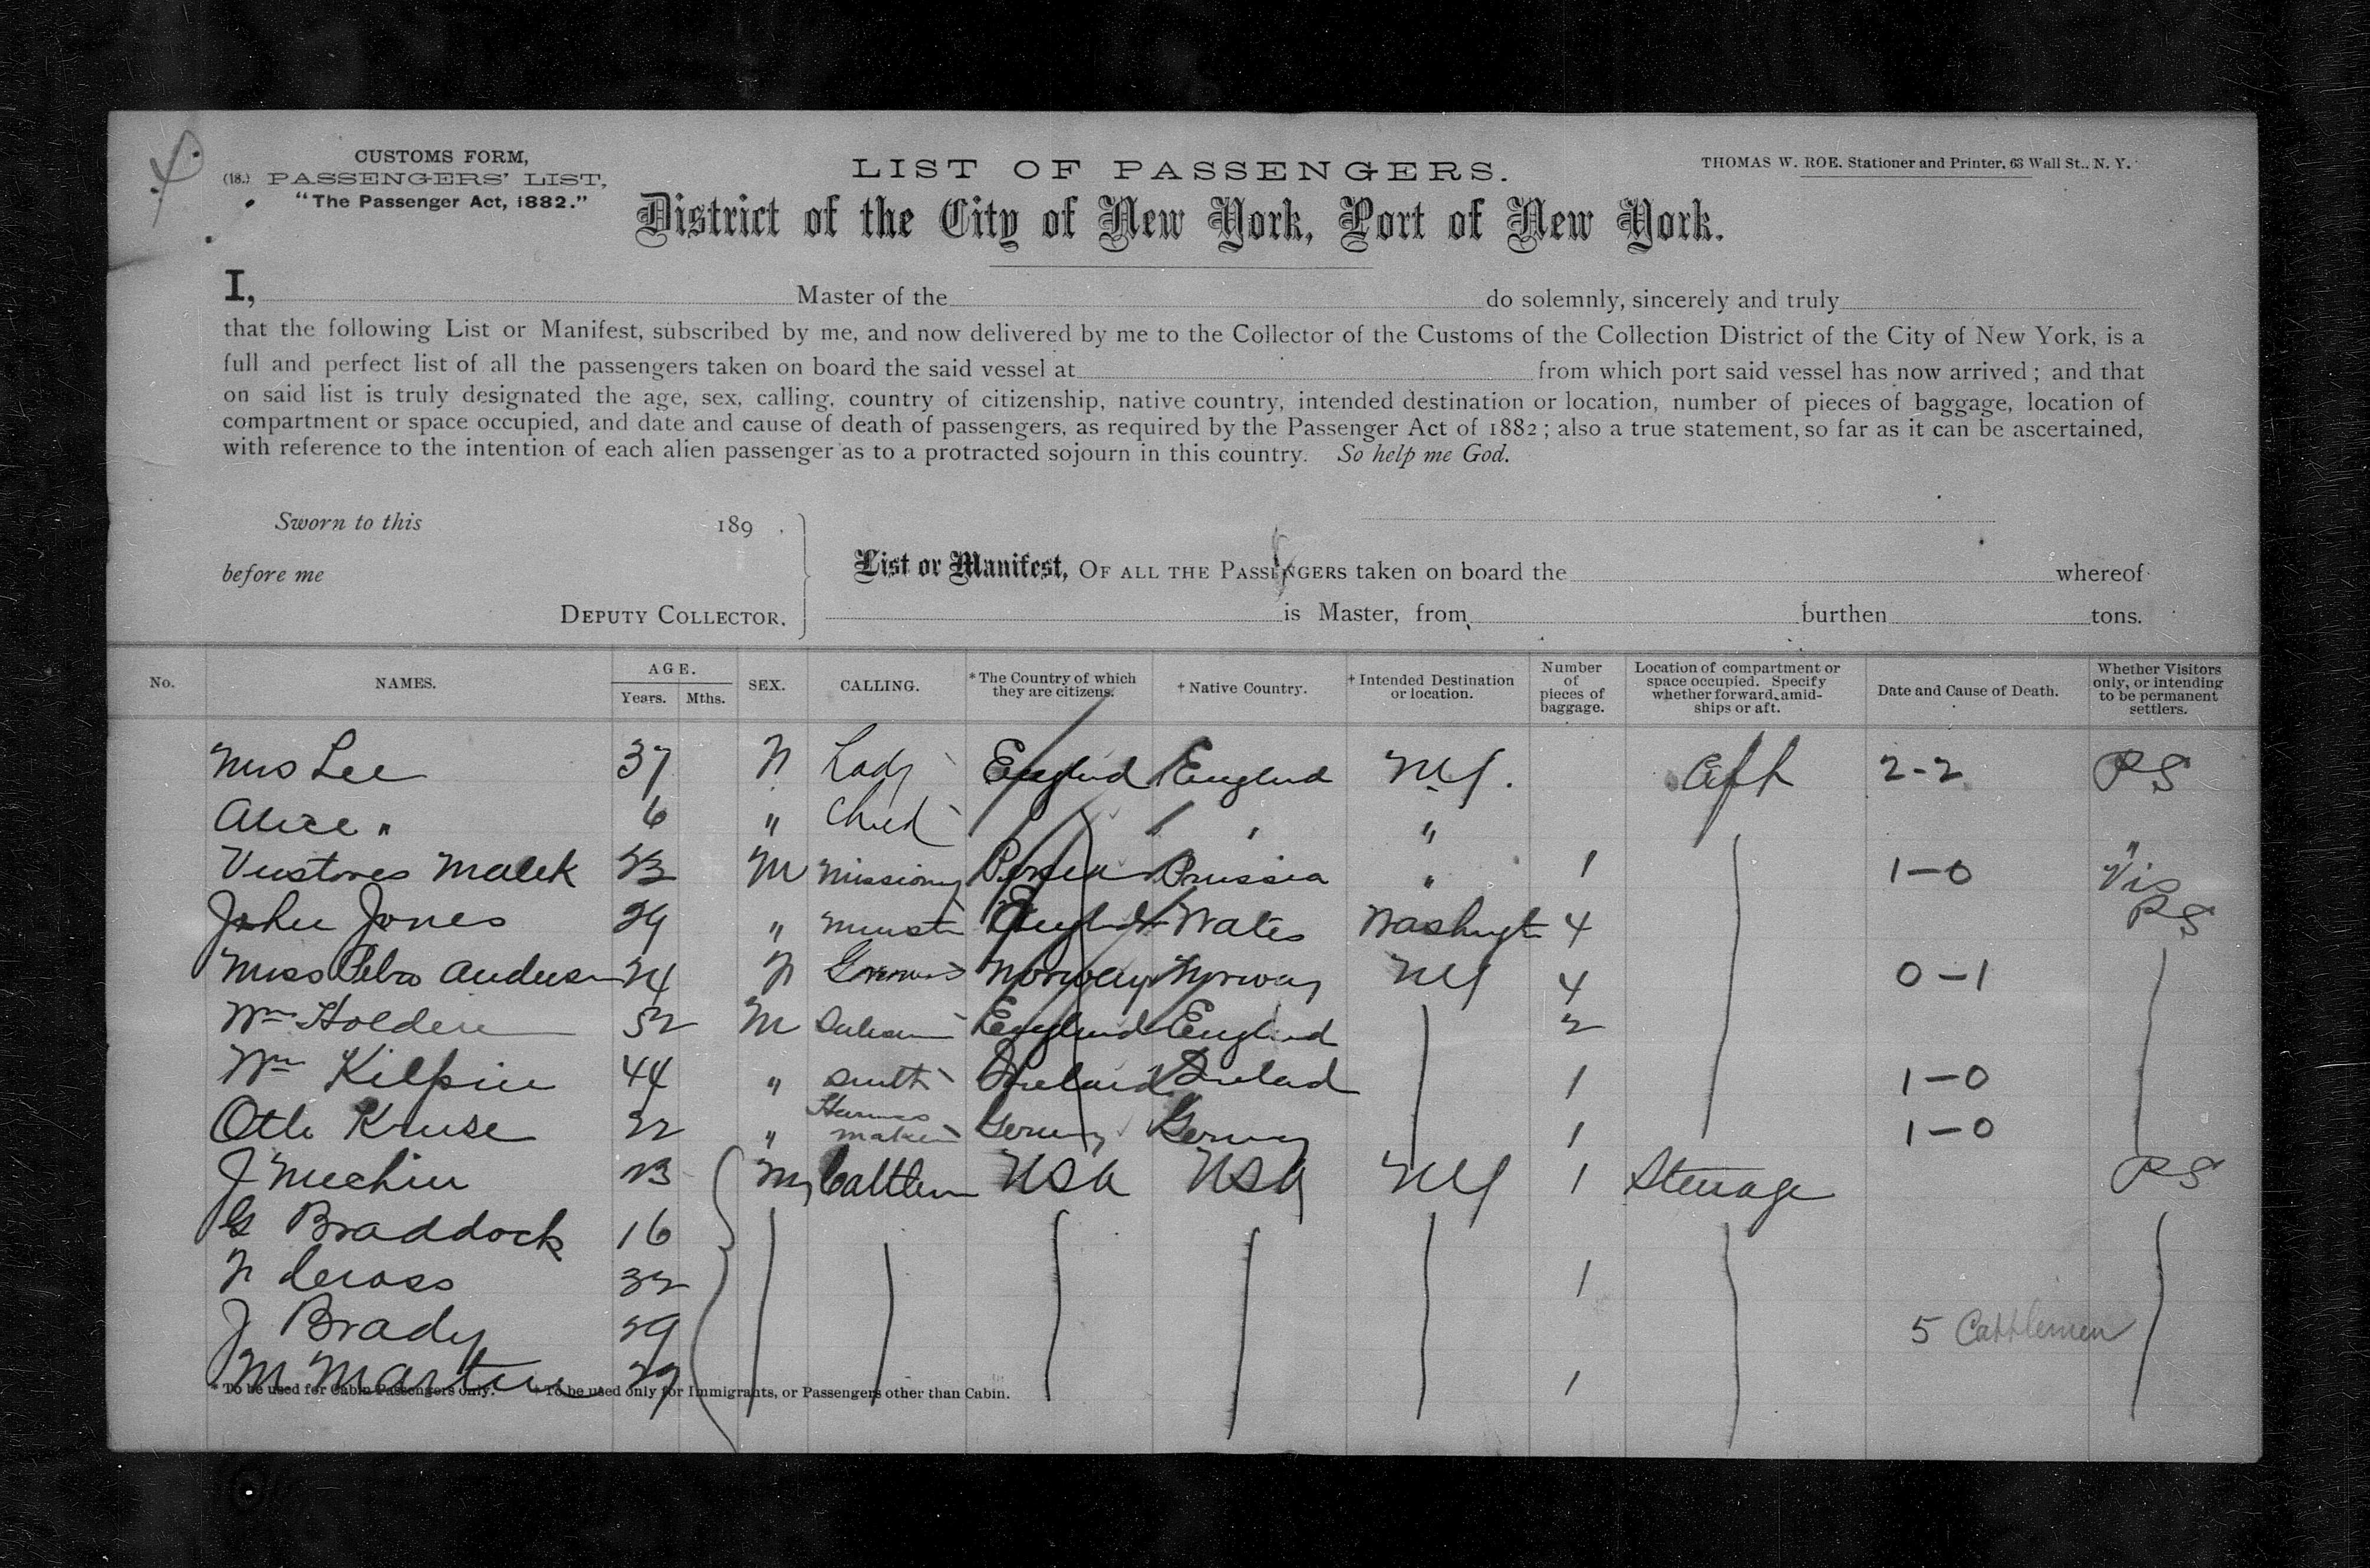 CUSTOMS FORM,
(18.) PASSENGERS' LIST,
"The Passenger Act, 1882."
LIST OF PASSENGERS.
THOMAS W. ROE. Stationer and Printer, 63 Wall St., N. Y.
District of the City of New York, Port of New York.
I, Master of the do solemnly, sincerely and truly
that the following List or Manifest, subscribed by me, and now delivered by me to the Collector of the Customs of the Collection District of the City of New York, is a
full and perfect list of all the passengers taken on board the said vessel at from which port said vessel has now arrived; and that
on said list is truly designated the age, sex, calling, country of citizenship, native country, intended destination or location, number of pieces of baggage, location of
compartment or space occupied, and date and cause of death of passengers, as required by the Passenger Act of 1882; also a true statement, so far as it can be ascertained,
with reference to the intention of each alien passenger as to a protracted sojourn in this country. So help me God.
Sworn to this 189 .
before me
DEPUTY COLLECTOR.
List or Manifest, OF ALL THE PASSENGERS taken on board the whereof
is Master, from burthen tons.
No. NAMES. AGE. Years. Mths. SEX. CALLING. *The Country of which they are citizens. †Native Country. †Intended Destination or location. Number of pieces of baggage. Location of compartment or space occupied. Specify whether forward, amidships or aft. Date and Cause of Death. Whether Visitors only, or intending to be permanent settlers.
Mrs Lee 37 Lady England England NY. Aft 2-2 PS
Alice " 6 " Child " "
Malek 23 M Missiony Persia Prussia " 1 1-0 Vis
John Jones 29 " Minist England Wales Washingt 4 PS
Miss Anderson 24 Norway Norway NY 4 0-1
Wm Holden 52 M Salesm England England 2
Wm Kilpin 44 " Smith Ireland Ireland 1 1-0
Otto Kruse 22 " Harness maker Germy Germy 1 1-0
J Mechin 23 M Cattlem USA USA NY 1 Steerage PS
G Braddock 16
Cross 32 1
J Brady 29 5 Cattlemen
M Martin 29 1
* To be used for Cabin Passengers only. † To be used only for Immigrants, or Passengers other than Cabin.